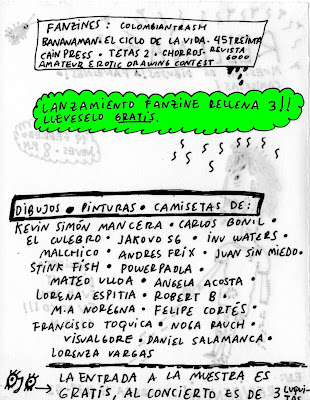 FANZINES: COLOMBIANTRASH
BANANAMAN · EL CICLO DE LA VIDA · 45TREINTA
CAIN PRESS · TETAS 2 · CHORROS · REVISTA 6000
AMATEUR EROTIC DRAWING CONTEST
LANZAMIENTO FANZINE RELLENA 3!!
LLEVESELO GRATIS.
DIBUJOS · PINTURAS · CAMISETAS DE:
KEVIN SIMÓN MANCERA · CARLOS BONIL ·
EL CULEBRO · JAKOVO 56 · INU WATERS ·
MALCHICO · ANDRES FRIX · JUAN SIN MIEDO ·
STINK FISH · POWERPAOLA ·
MATEO ULLOA · ANGELA ACOSTA ·
LORENA ESPITIA · ROBERT B ·
M.A NOREGNA · FELIPE CORTÉS ·
FRANCISCO TOQUICA · NOGA RAUCH ·
VISUALGORE · DANIEL SALAMANCA ·
LORENZA VARGAS
OJO → LA ENTRADA A LA MUESTRA ES
GRATIS, AL CONCIERTO ES DE 3 LUQUITAS